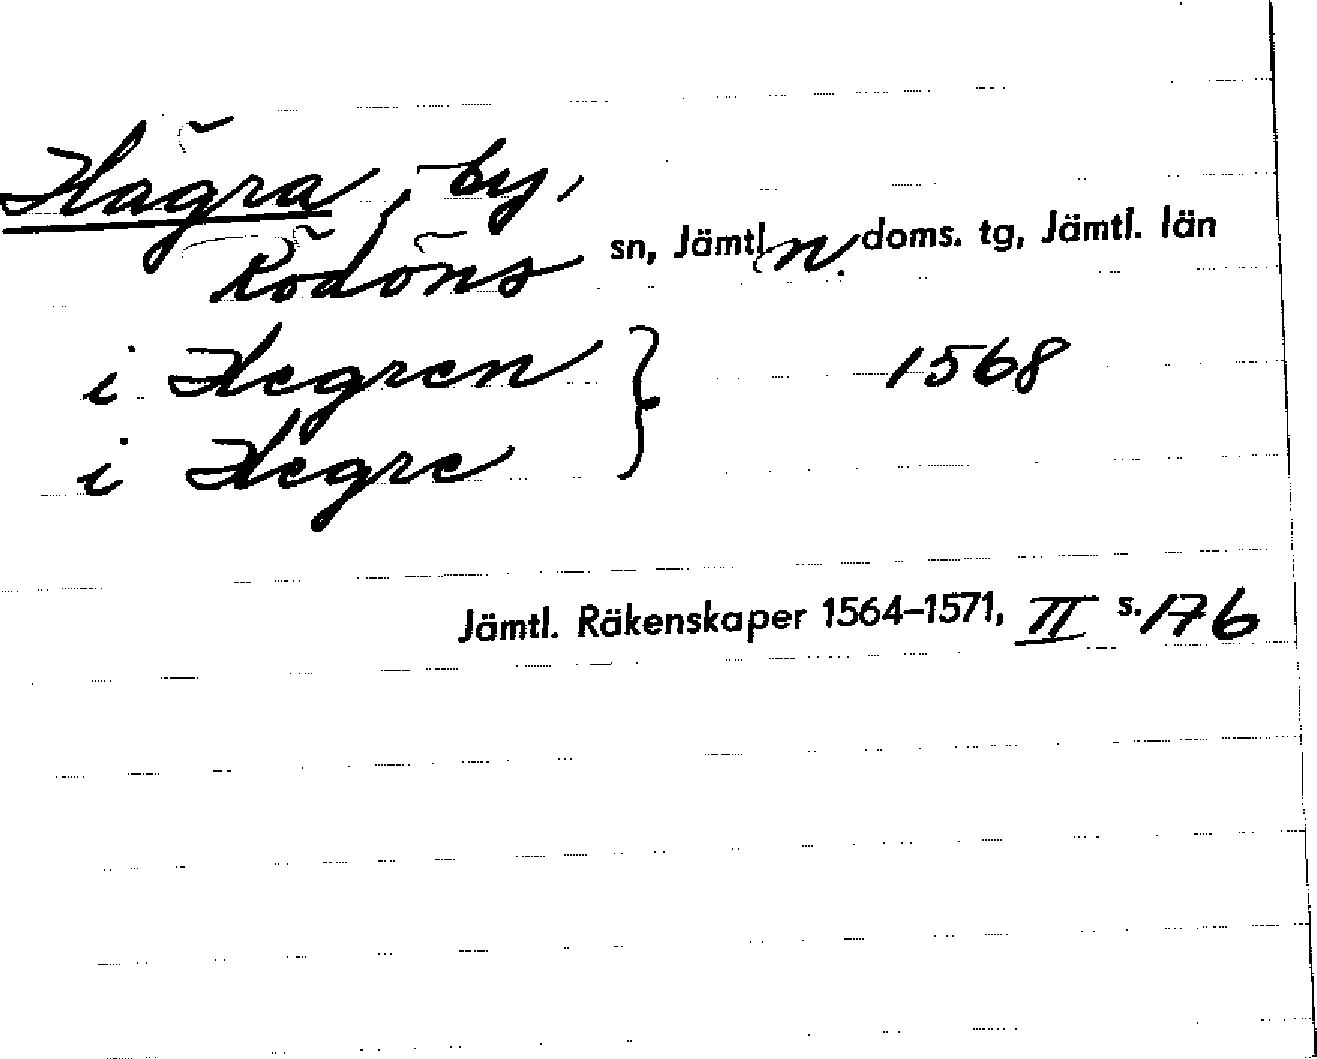 Hägra, by,
Rödöns sn, Jämtl. n. doms. tg, Jämtl. län
i Hegren } 1568
i Hegre
Jämtl. Räkenskaper 1564–1571, II s. 176